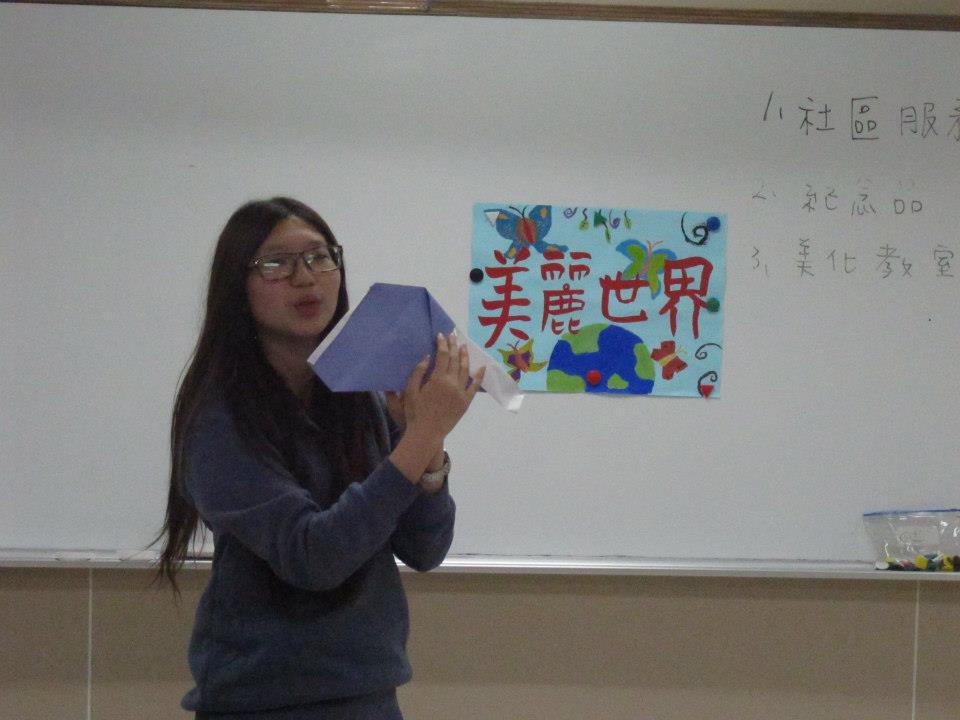 美麗世界
1、社區服務
2、紀念品
3、美化教室